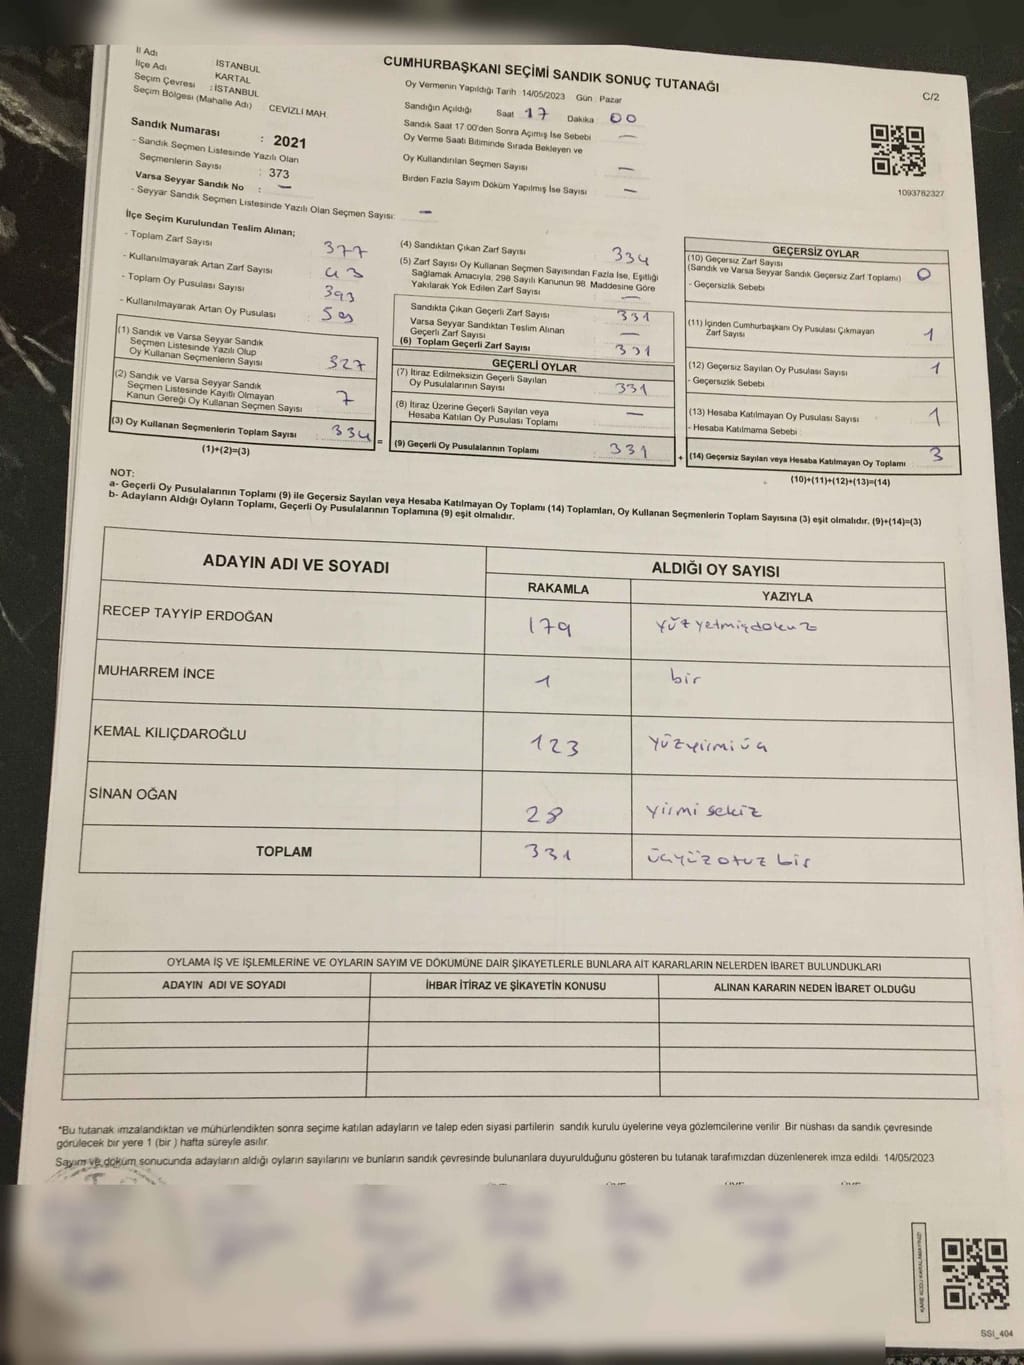 İl Adı İSTANBUL
İlçe Adı KARTAL
Seçim Çevresi : İSTANBUL
Seçim Bölgesi (Mahalle Adı) CEVİZLİ MAH.
Sandık Numarası : 2021
- Sandık Seçmen Listesinde Yazılı Olan
Seçmenlerin Sayısı : 373
Varsa Seyyar Sandık No : —
- Seyyar Sandık Seçmen Listesinde Yazılı Olan Seçmen Sayısı: —
CUMHURBAŞKANI SEÇİMİ SANDIK SONUÇ TUTANAĞI
C/2
Oy Vermenin Yapıldığı Tarih 14/05/2023 Gün : Pazar
Sandığın Açıldığı Saat 17 Dakika 00
Sandık Saat 17 00'den Sonra Açımış İse Sebebi —
Oy Verme Saati Bitiminde Sırada Bekleyen ve
Oy Kullandırılan Seçmen Sayısı —
Birden Fazla Sayım Döküm Yapılmış İse Sayısı —
1093782327
İlçe Seçim Kurulundan Teslim Alınan;
- Toplam Zarf Sayısı 377
- Kullanılmayarak Artan Zarf Sayısı 43
- Toplam Oy Pusulası Sayısı 393
- Kullanılmayarak Artan Oy Pusulası
(1) Sandık ve Varsa Seyyar Sandık
Seçmen Listesinde Yazılı Olup
Oy Kullanan Seçmenlerin Sayısı 327
(2) Sandık ve Varsa Seyyar Sandık
Seçmen Listesinde Kayıtlı Olmayan
Kanun Gereği Oy Kullanan Seçmen Sayısı 7
(3) Oy Kullanan Seçmenlerin Toplam Sayısı 334
(1)+(2)=(3)
(4) Sandıktan Çıkan Zarf Sayısı 334
(5) Zarf Sayısı Oy Kullanan Seçmen Sayısından Fazla İse, Eşitliği
Sağlamak Amacıyla, 298 Sayılı Kanunun 98. Maddesine Göre
Yakılarak Yok Edilen Zarf Sayısı —
Sandıkta Çıkan Geçerli Zarf Sayısı 331
Varsa Seyyar Sandıktan Teslim Alınan
Geçerli Zarf Sayısı —
(6) Toplam Geçerli Zarf Sayısı 331
GEÇERLİ OYLAR
(7) İtiraz Edilmeksizin Geçerli Sayılan
Oy Pusulalarının Sayısı 331
(8) İtiraz Üzerine Geçerli Sayılan veya
Hesaba Katılan Oy Pusulası Toplamı —
= (9) Geçerli Oy Pusulalarının Toplamı 331
GEÇERSİZ OYLAR
(10) Geçersiz Zarf Sayısı
(Sandık ve Varsa Seyyar Sandık Geçersiz Zarf Toplamı) 0
- Geçersizlik Sebebi
(11) İçinden Cumhurbaşkanı Oy Pusulası Çıkmayan
Zarf Sayısı 1
(12) Geçersiz Sayılan Oy Pusulası Sayısı 1
- Geçersizlik Sebebi
(13) Hesaba Katılmayan Oy Pusulası Sayısı 1
- Hesaba Katılmama Sebebi
+ (14) Geçersiz Sayılan veya Hesaba Katılmayan Oy Toplamı 3
(10)+(11)+(12)+(13)=(14)
NOT:
a- Geçerli Oy Pusulalarının Toplamı (9) ile Geçersiz Sayılan veya Hesaba Katılmayan Oy Toplamı (14) Toplamları, Oy Kullanan Seçmenlerin Toplam Sayısına (3) eşit olmalıdır. (9)+(14)=(3)
b- Adayların Aldığı Oyların Toplamı, Geçerli Oy Pusulalarının Toplamına (9) eşit olmalıdır.
ADAYIN ADI VE SOYADI ALDIĞI OY SAYISI
RAKAMLA YAZIYLA
RECEP TAYYİP ERDOĞAN 179 yüzyetmişdokuz
MUHARREM İNCE 1 bir
KEMAL KILIÇDAROĞLU 123 yüzyirmiüç
SİNAN OĞAN 28 yirmi sekiz
TOPLAM 331 üçyüzotuz bir
OYLAMA İŞ VE İŞLEMLERİNE VE OYLARIN SAYIM VE DÖKÜMÜNE DAİR ŞİKAYETLERLE BUNLARA AİT KARARLARIN NELERDEN İBARET BULUNDUKLARI
ADAYIN ADI VE SOYADI İHBAR İTİRAZ VE ŞİKAYETİN KONUSU ALINAN KARARIN NEDEN İBARET OLDUĞU
*Bu tutanak imzalandıktan ve mühürlendikten sonra seçime katılan adayların ve talep eden siyasi partilerin sandık kurulu üyelerine veya gözlemcilerine verilir. Bir nüshası da sandık çevresinde
görülecek bir yere 1 (bir ) hafta süreyle asılır.
Sayım ve döküm sonucunda adayların aldığı oyların sayılarını ve bunların sandık çevresinde bulunanlara duyurulduğunu gösteren bu tutanak tarafımızdan düzenlenerek imza edildi. 14/05/2023
KARE KODU KARALAMAYINIZ!
SSI_404